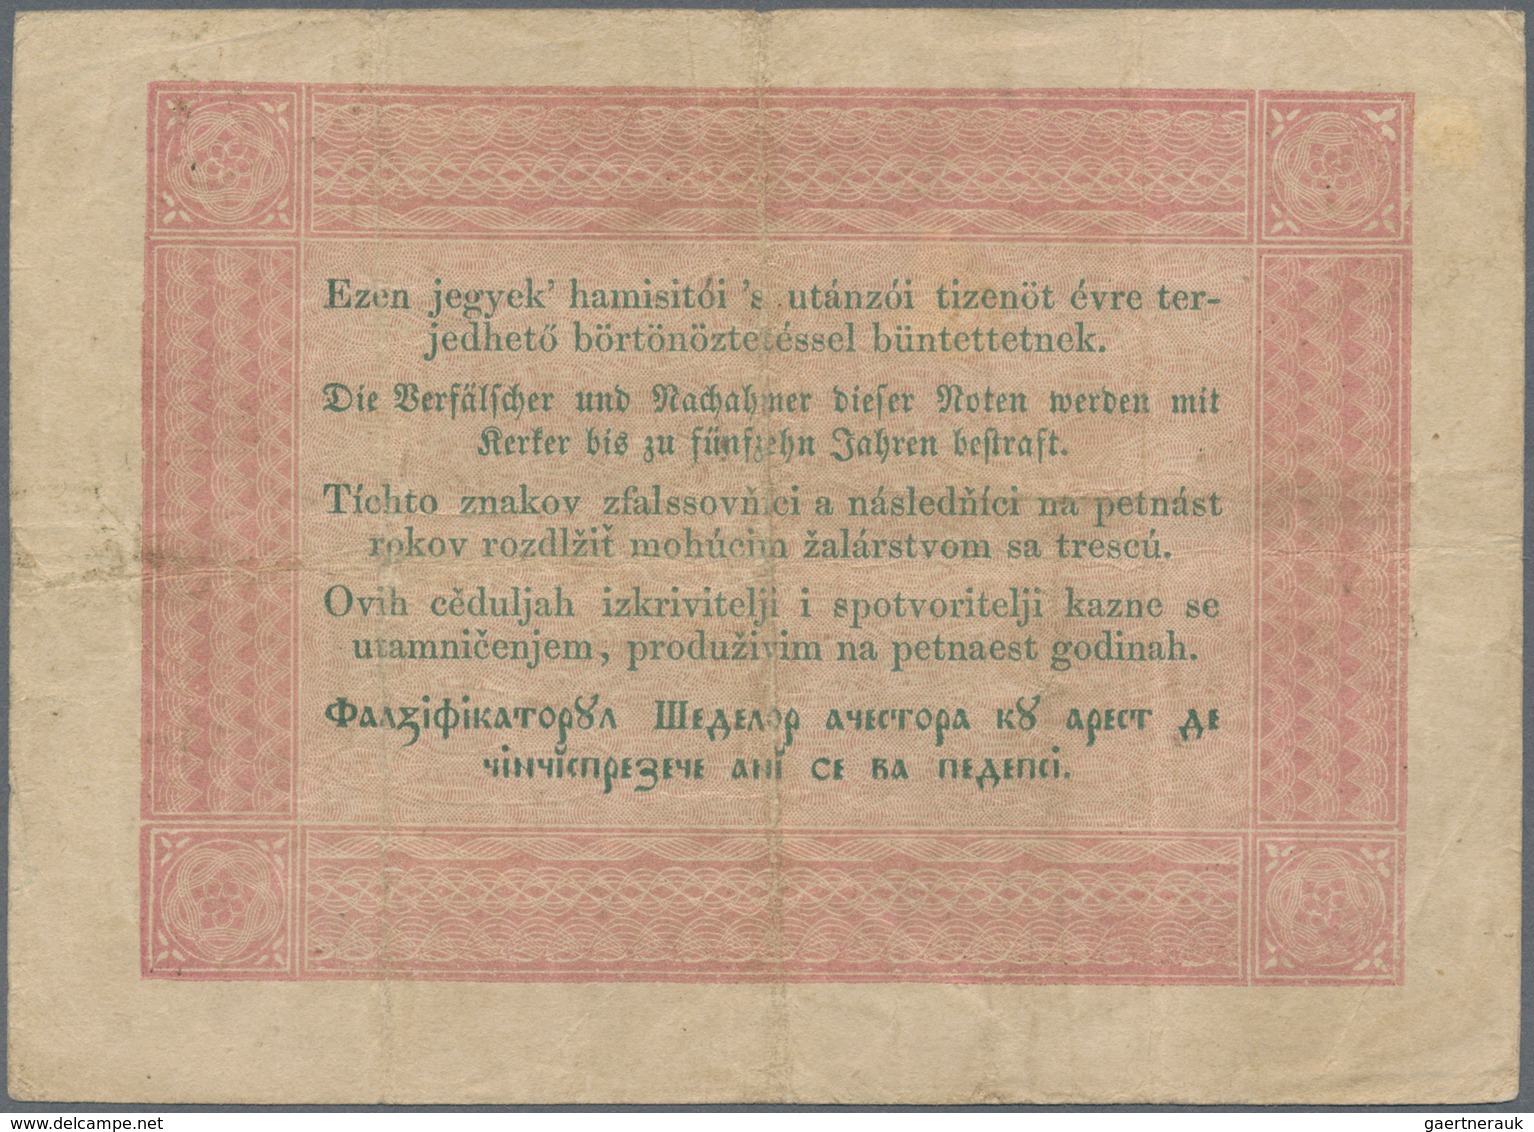 Ezen jegyek’ hamisitói ’s utánzói tizenöt évre ter-
jedhető börtönöztetéssel büntettetnek.
Die Verfälscher und Nachahmer dieser Noten werden mit
Kerker bis zu fünfzehn Jahren bestraft.
Tíchto znakov zfalssovňíci a následňíci na petnást
rokov rozdlžiť mohúcim žalárstvom sa trescú.
Ovih cěduljah izkrivitelji i spotvoritelji kazne se
utamničenjem, produživim na petnaest godinah.
Фалзіфікаторꙋл Шеделор ачестора кꙋ арест де
чінчіспрезече ані се ва педепсі.
gaertnerauk